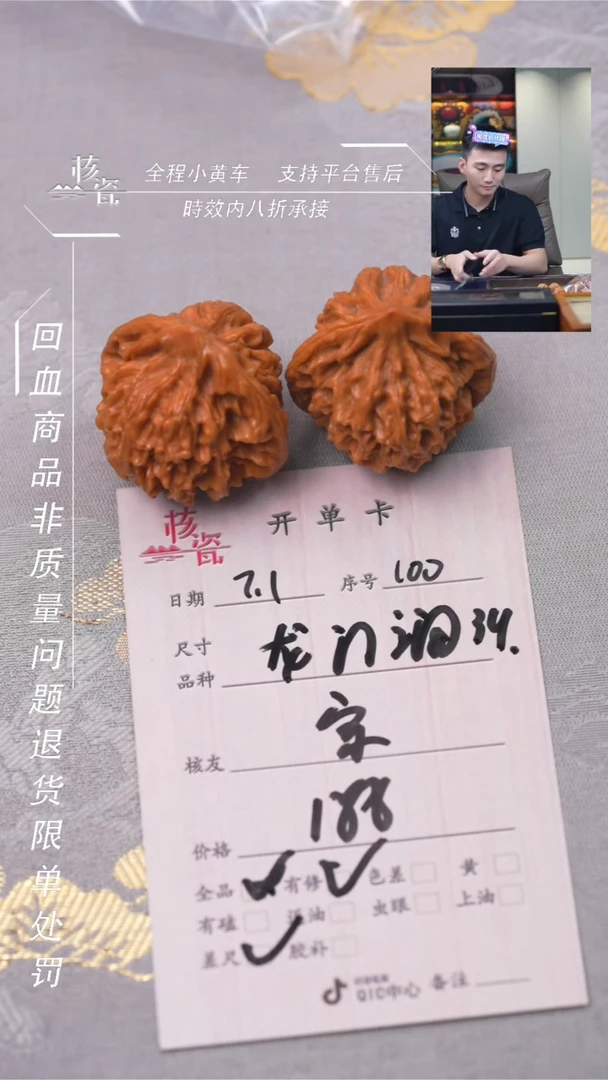 核瓷
全程小黄车 支持平台售后
時效内八折承接
回血商品非质量问题退货限单处罚
核瓷
开单卡
日期 7.1 序号 100
尺寸
品种 龙门润狮 39.
核友 宗
价格 188
全品 有修 色差 黄
有磕 浸油 虫眼 上油
差尺 胶补
QIC中心 备注